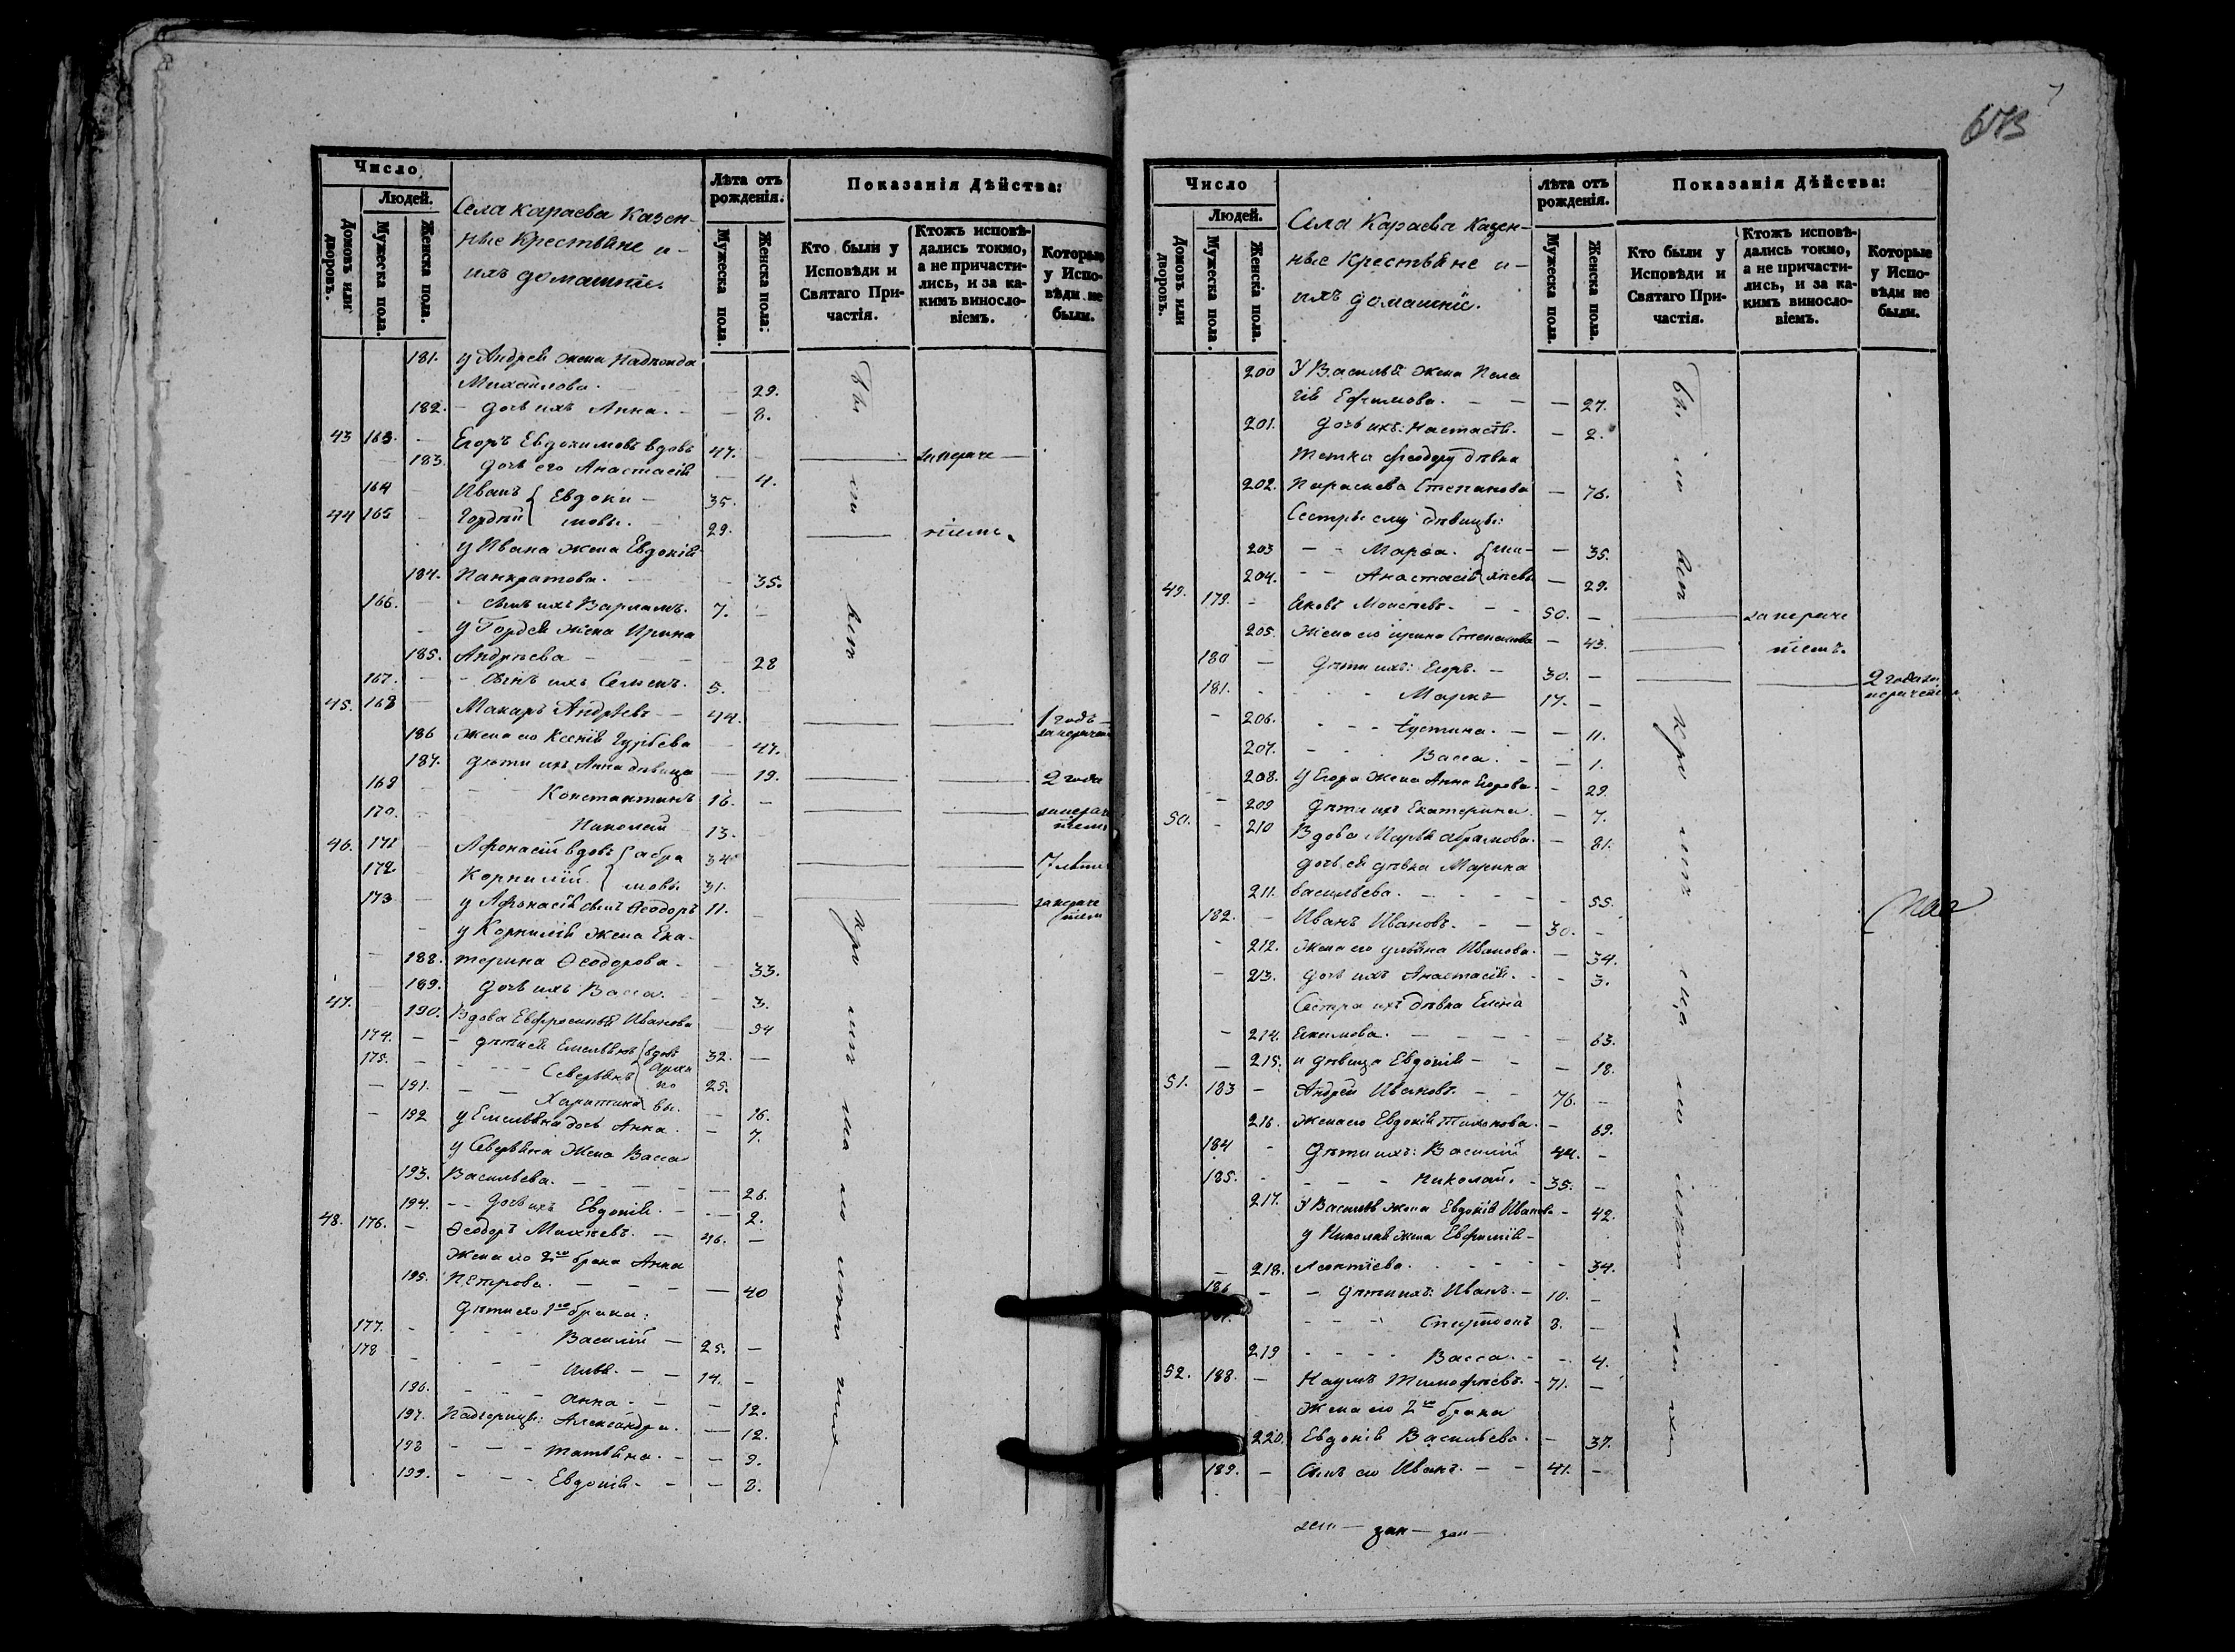 Число
Людей.
Домовъ или дворовъ.
Мужеска пола.
Женска пола.
Села Караева Казен-
ные Крестьяне и
ихъ домашніе.
Лѣта отъ рожденія.
Мужеска пола.
Женска пола.
Показанія Дѣйства:
Кто были у Исповѣди и Святаго Причастія.
Ктожъ исповѣдались токмо, а не причастились, и за какимъ винословіемъ.
Которые у Исповѣди не были.
181. у Андрея жена
Михайлова. 29.
182. - дочь ихъ Анна. - - 8.
43 163. - Егоръ Евдокимовъ вдовъ 47.
183. дочь его Анастасія - 4.
164 - Иванъ { Евдоки- 35.
44 165 - Гордѣй { мовы. 29.
у Ивана жена Евдокія
184. Панкратова. 35.
166. - - сынъ ихъ Варламъ. 7. -
у Гордея жена Ирина
185. Андреева - - 28
167. - - сынъ ихъ Семенъ. 5.
45. 168 - Макаръ Андреевъ - 44. 1 годъ
186 жена его Ксенія Гурьева 47.
187. дѣти ихъ Анна дѣвица - 19. 2 года
169 - Константинъ 16. -
170. - Николай 13.
46. 171 - Афонасій вдовъ { абра 34 7 лѣтъ
172 - Корнилій { мовы 31.
173 - у Афонасія сынъ Ѳеодоръ 11.
у Корнилія жена Ека-
188. терина Ѳеодорова - 33.
189. дочь ихъ Васса. - 3.
47. 190. Вдова Евфросинія Иванова 54
174. - - дѣти ея Емельянъ { вдовъ 32. -
175. - Северьянъ { 25.
- 191. Харитина { вы. - 16.
- 192 у Емельяна дочь Анна. - 7.
у Северьяна жена Васса
193. Васильева. - - 26.
194. - - дочь ихъ Евдокія. - - 2.
48. 176. - Ѳеодоръ Михѣевъ. - 46. -
жена его 2го брака Анна
195. Петрова. - - - 40
дѣти его 1го брака:
177. - Василій - 25. -
178 - Илья. - - 14. -
196. Анна. - - 12.
197. Падчерицы: Александра. - 12.
198 - - - Татьяна. - - 9.
199. - - - Евдокія - - - 8.
673
Число
Людей.
Домовъ или дворовъ.
Мужеска пола.
Женска пола.
Села Караева Казен-
ные Крестьяне и
ихъ домашніе.
Лѣта отъ рожденія.
Мужеска пола.
Женска пола.
Показанія Дѣйства:
Кто были у Исповѣди и Святаго Причастія.
Ктожъ исповѣдались токмо, а не причастились, и за какимъ винословіемъ.
Которые у Исповѣди не были.
200 У Василья жена Пела
гія Ефимова. - - - 27.
201. дочь ихъ: Настасья. - 2.
тетка Ѳеодору дѣвка
202. Параскева Степанова - 76.
Сестры ему дѣвицы:
203 - - Марѳа. { Ми- - 35.
204. - - Анастасія { хѣевы - 29.
49. 179. - Яковъ Моисеевъ. - - 50. -
205. жена его Ирина Степанова - 43.
180 - дѣти ихъ: Егоръ. - 30. - 2 года
181. - Маркъ 17. -
206. - - Іустина. - - 11.
207. - - Васса. - - 1.
208. у Егора жена Анна Егорова - 29.
209 дѣти ихъ Екатерина. - 7.
50. - 210 Вдова Марья Абрамова. - 81.
дочь ея дѣвка Марина
211. Васильева. - - - 55.
182. - Иванъ Ивановъ. - - 30. -
212. жена его Ульяна Иванова. - 34.
213. дочь ихъ Анастасія. - - 3.
Сестра ихъ дѣвка Елена
214. Екимова. - - - 63.
215. и дѣвица Евдокія - - - 18.
51. 183 - Андрей Ивановъ. - - 76. -
216. жена его Евдокія Тихонова. - 69.
184 - дѣти ихъ: Василій 44. -
185. - - - - Николай. - 35. -
217. У Василья жена Евдокія Иванова - 42.
у Николая жена Евфимія -
218. Леонтіева. - - - - 34.
186 - - дѣти ихъ: Иванъ. - 10. -
Спиридонъ 8. -
219 - - - - Васса. - - 4.
52. 188. - Наумъ Тимофѣевъ. - 71. -
жена его 2го брака
220. Евдокія Васильева. - 37.
189. - Сынъ его Иванъ. - - 41. -